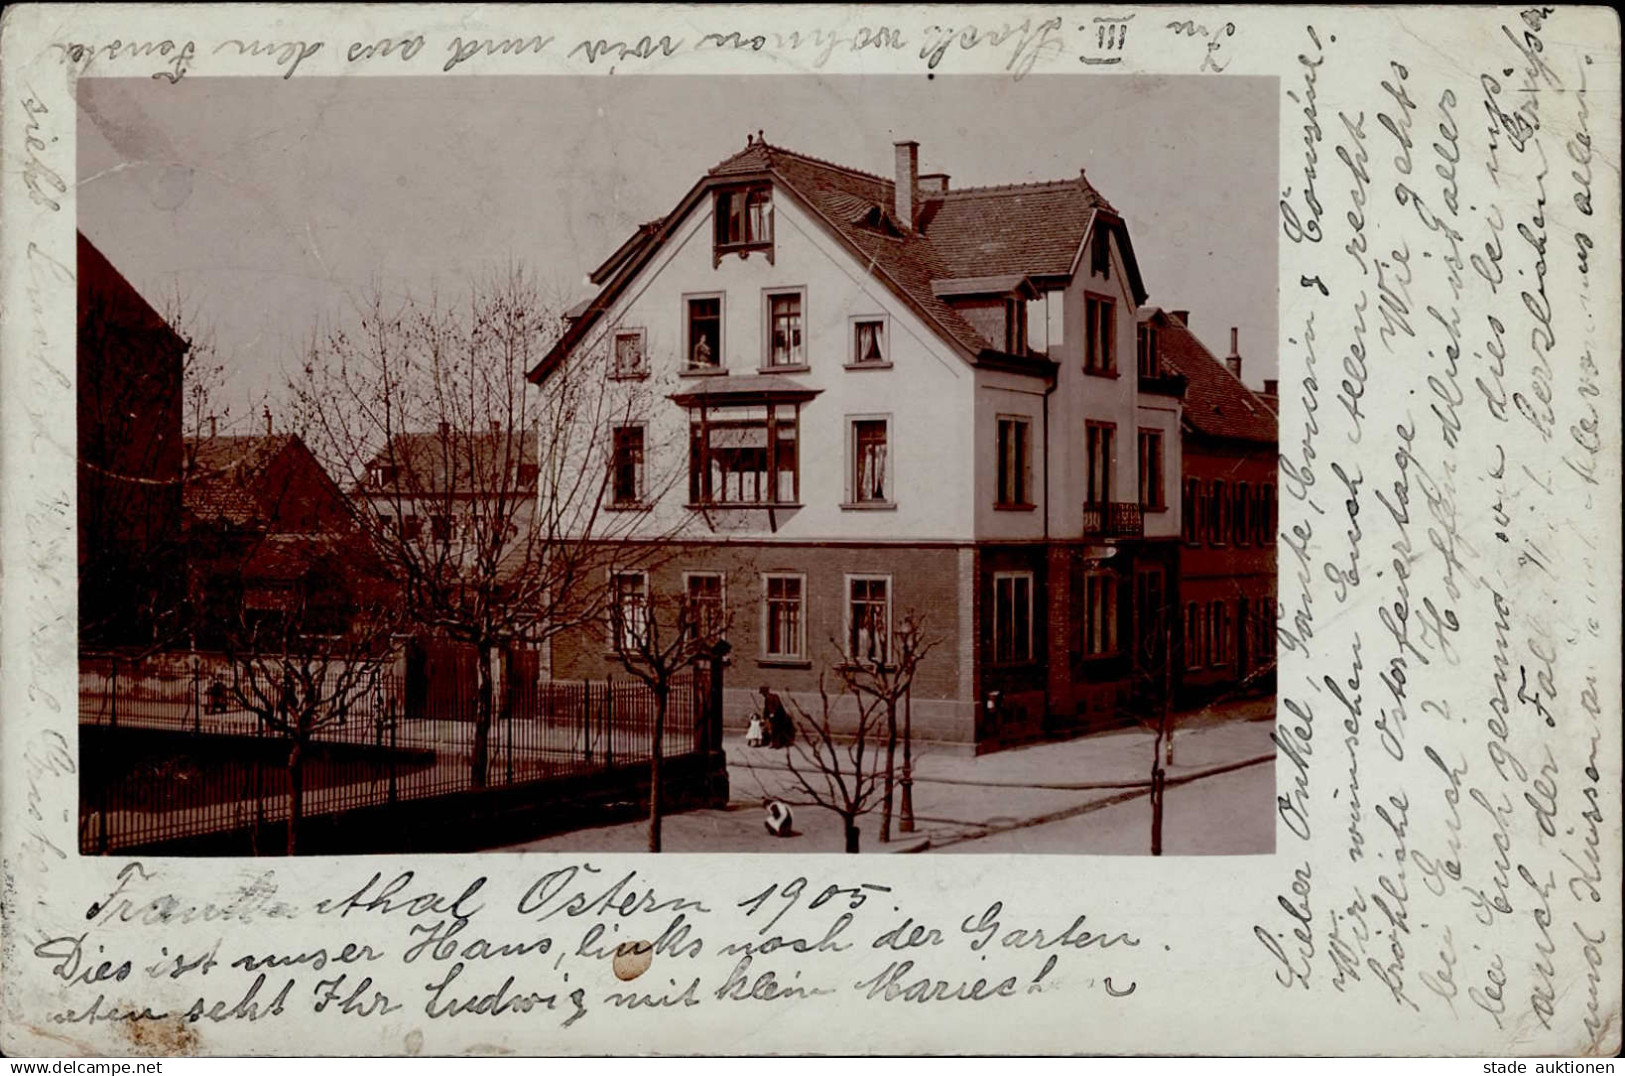 Lieber Onkel, Tante, Cousin & Cousine!
Wir wünschen Euch Allen recht
fröhliche Osterfeiertage. Wie gehts
bei Euch? Hoffendlich ist alles
bei Euch gesund, wie dies bei uns
auch der Fall. herzlichen Grüßen
und Küssen an alle von uns allen.
Frankenthal Ostern 1905.
Dies ist unser Haus, links noch der Garten.
unten seht Ihr Ludwig mit klein Mariechen
Im III. Stock wohnen wir und aus dem Fenster
sieht
stade auktionen